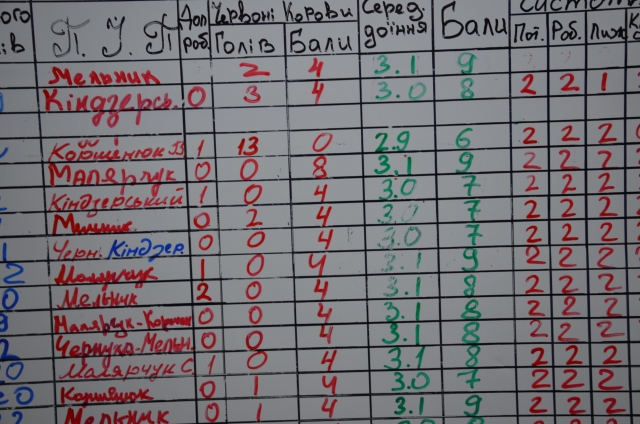 ого П. І. П Доп роб. Червоні Корови Серед доїння Бали Систо
ів Голів Бали Пот. Роб. Лиж
Мельник 2 4 3.1 9
Кіндзерсь. 0 3 4 3.0 8 2 2 1
Коршенюк В 1 13 0 2.9 6 2 2 2
Малярчук 0 0 8 3.1 9 2 2 2
Кіндзерський 1 0 4 3.0 7 2 2 2
0 2 4 3.0 7 2 2 2
Черн. Кіндзер. 0 0 4 3.0 7 2 2 2
Малярчук 1 0 4 3.1 9 2 2 2
Мельник 2 0 4 3.1 8 2 2 2
Малярук-Корши 0 0 4 3.1 8 2 2 2
Чернуха-Мельн. 0 0 4 3.1 8 2 2 2
Малярчук С 1 0 4 3.1 8 2 2 2
Коршенюк 0 1 4 3.0 7 2 2 2
Мельник 0 1 4 3.1 9 2 2 2